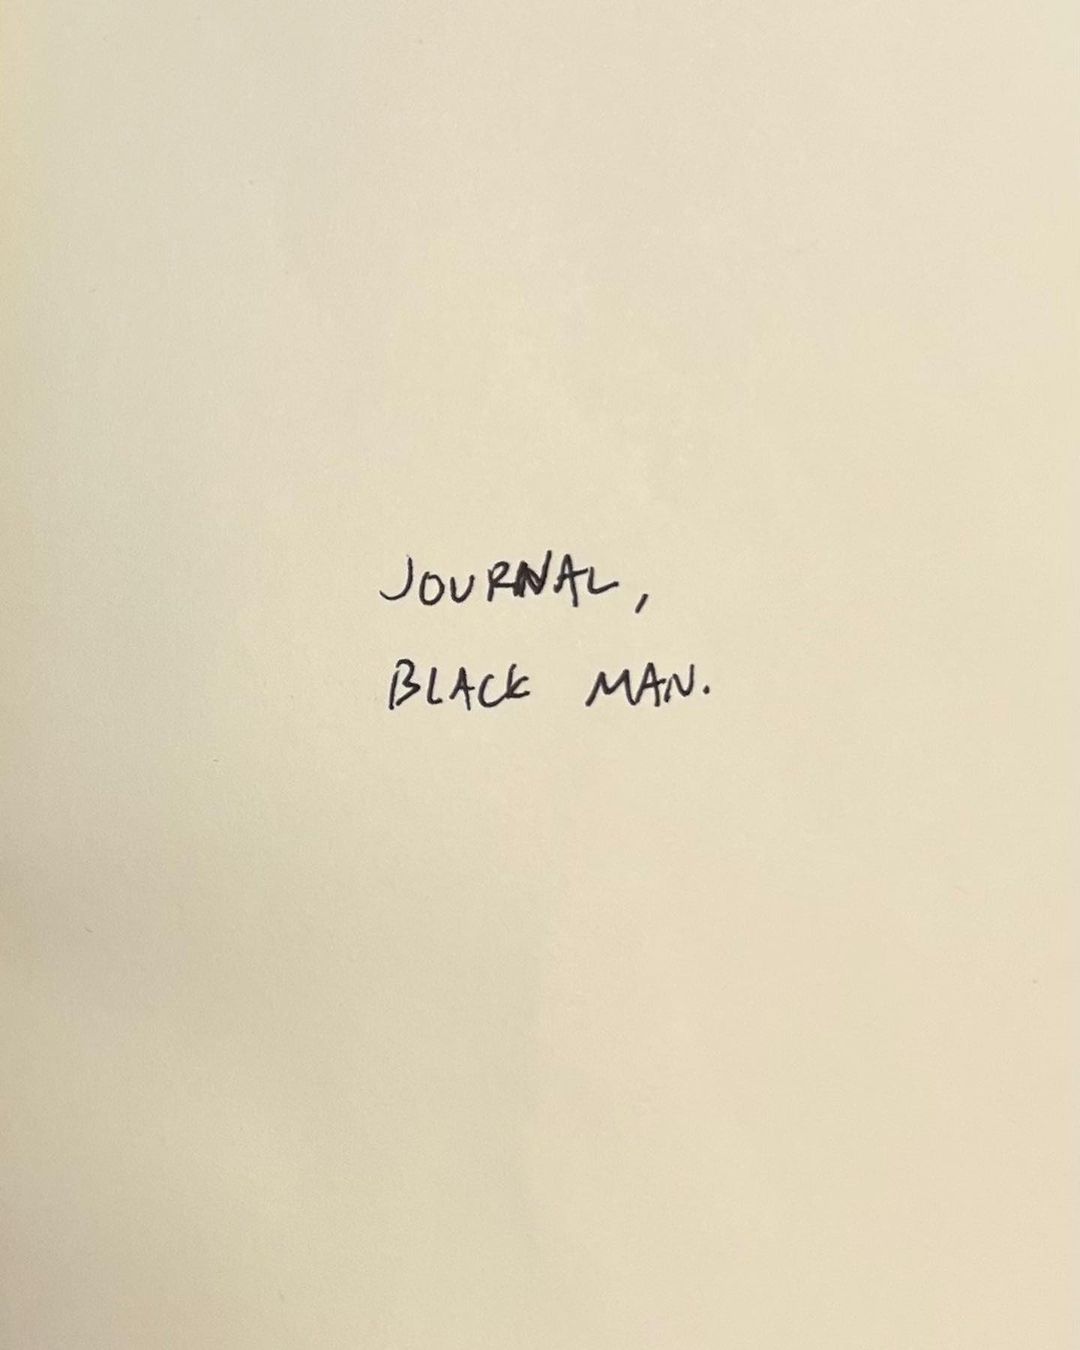 JOURNAL,
BLACK MAN.